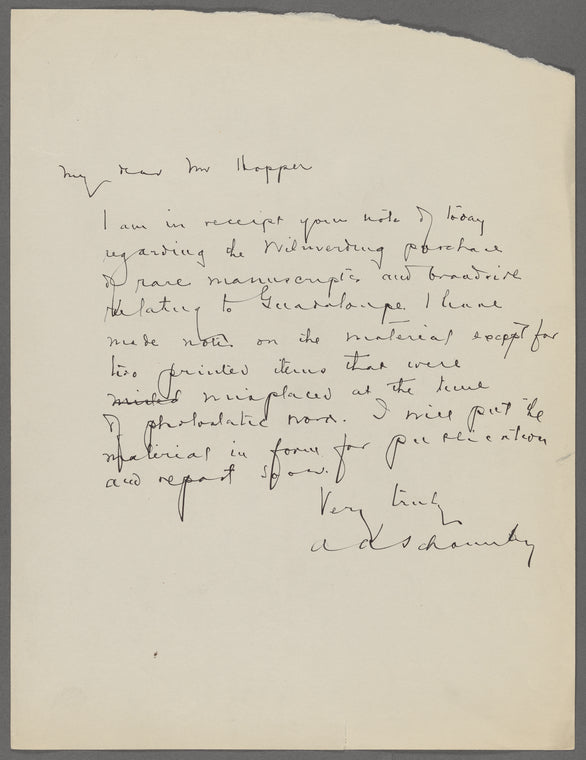 My dear Mr Hopper
I am in receipt your note of today
regarding the Wilmerding purchase
of rare manuscripts and broadside
relating to Guadaloupe. I have
made notes on the material except for
two printed items that were
misplaced at the time
of photostatic work. I will put the
material in form for publication
and report soon.
Very truly
A A Schomburg